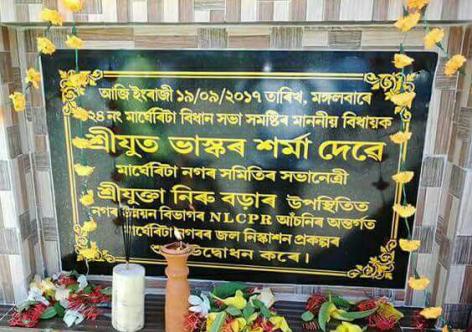 আজি ইংৰাজী ১৯/০৯/২০১৭ তাৰিখ, মঙ্গলবাৰে
২৪ নং মাৰ্ঘেৰিটা বিধান সভা সমষ্টিৰ মাননীয় বিধায়ক
শ্ৰীযুত ভাস্কৰ শৰ্মা দেৱে
মাৰ্ঘেৰিটা নগৰ সমিতিৰ সভানেত্ৰী
শ্ৰীযুক্তা নিৰু বড়াৰ উপস্থিতিত
নগৰ উন্নয়ন বিভাগৰ NLCPR আঁচনিৰ অন্তৰ্গত
মাৰ্ঘেৰিটা নগৰৰ জল নিষ্কাশন প্ৰকল্পৰ
উদ্বোধন কৰে।